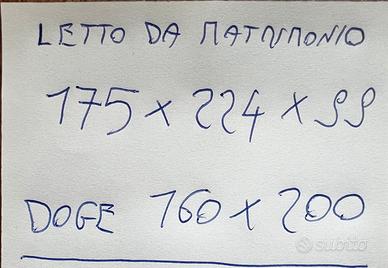 LETTO DA MATRIMONIO
175 x 224 x 99
DOGE 160 x 200
subito